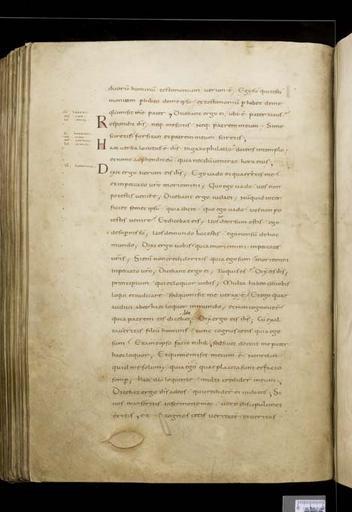 duorū hominū testimonium verum ē, Ego sū qui testi
monium phibeo de me ipso &testimonium phibet de me
qui misit me pater, Dicebant ergo ei, ubi ē pater tuus
respondit ihs, neq· me scitis neq· patrem meum, Si me
sciretis forsitan &patrem meum sciretis,
Haec verba locutus ē ihs in gazophilatio docens in templo
&nemo adphendit eū quia necdū venerat hora eius,
Dixit ergo iterum eis ihs, Ego vado &quaeretis me
&inpeccato vrō moriemini, Quo ego vado vos non
potestis venire, Dicebant ergo iudaei, numquid inter
ficiet semet ipsū quia dicit quo ego vado vos non po
testis venire, Et dicebat eis, Vos deorsum estis ego
desupnis sū, Vos demundo hoc estis ego non sū de hoc
mundo, Dixi ergo vobis quia moriemini inpeccatis
vrīs, Si enī non credideritis quia ego sum moriemini
inpeccato vrō, Dicebant ergo ei, Tu quis es, Dixit eis ihs,
principium qui &loquor vobis, Multa habeo de vobis
loqui &iudicare sed qui misit me verax ē, Et ego quae
audivi ab eo haec loquor in mundo, &non cognoverunt
quia patrem eis dicebat dm, Dixit ergo eis ihs, Cū exal
taveritis filiū hominis tunc cognoscetis quia ego
sum, Et a me ipso facio nihil, sed sicut docuit me pater
haec loquor, Et qui me misit mecum ē &non reli
quid me solum, quia ego quae placita sunt ei facio
semp, haec illo loquente multi crediderunt in eum,
Dicebat ergo ihs ad eos qui crediderunt ei iudaeos, Si
vos manseritis in sermone meo vere discipuli mei
eritis, & cognoscetis veritatē &veritas